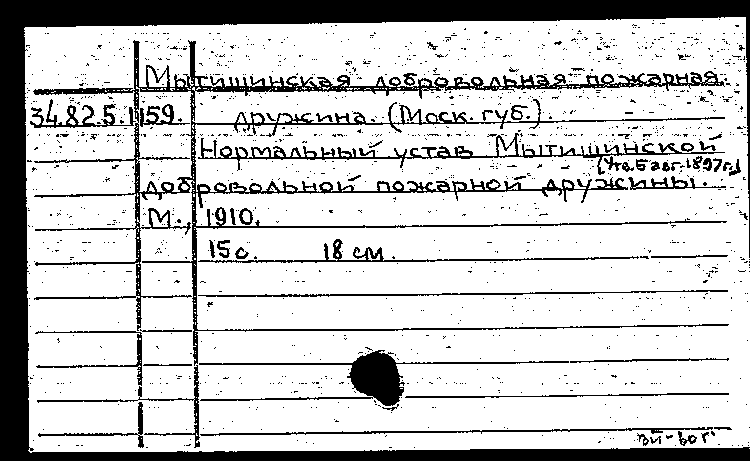 Мытищинская добровольная пожарная
34.82.5.1159. дружина. (Моск. губ.).
Нормальный устав Мытищинской
[Утв. 5 авг. 1897г.]
добровольной пожарной дружины.
М., 1910.
15 с. 18 см.